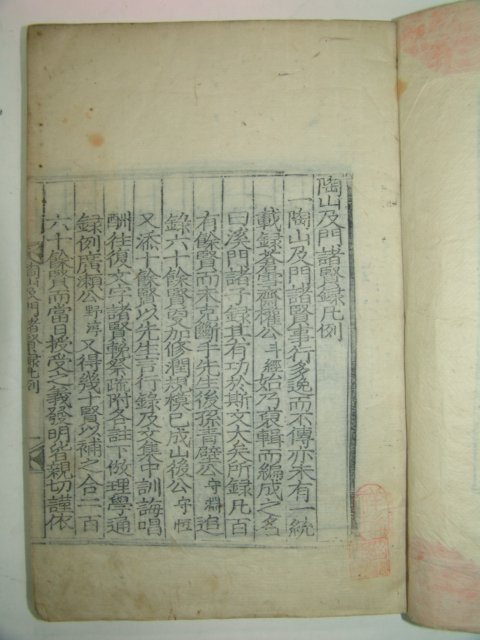 陶山及門諸賢錄凡例
一陶山及門諸賢事行多逸而不傳亦未有一統
載錄蒼雪齋權公斗經始乃裒輯而編成之名
曰溪門諸子錄其有功於斯文大矣所錄凡百
有餘賢而未克斷手先生後孫靑壁公守淵追
錄六十餘賢妥加修潤規模已成山後公守恒
又添十餘賢以先生言行錄及文集中訓誨唱
酬往復文字諸賢輓祭疏附各註下倣理學通
錄例廣瀨公野淳又得幾十賢以補之合二百
六十餘賢而當日授受之義發明省親切謹依
陶山及門諸賢錄凡例 一